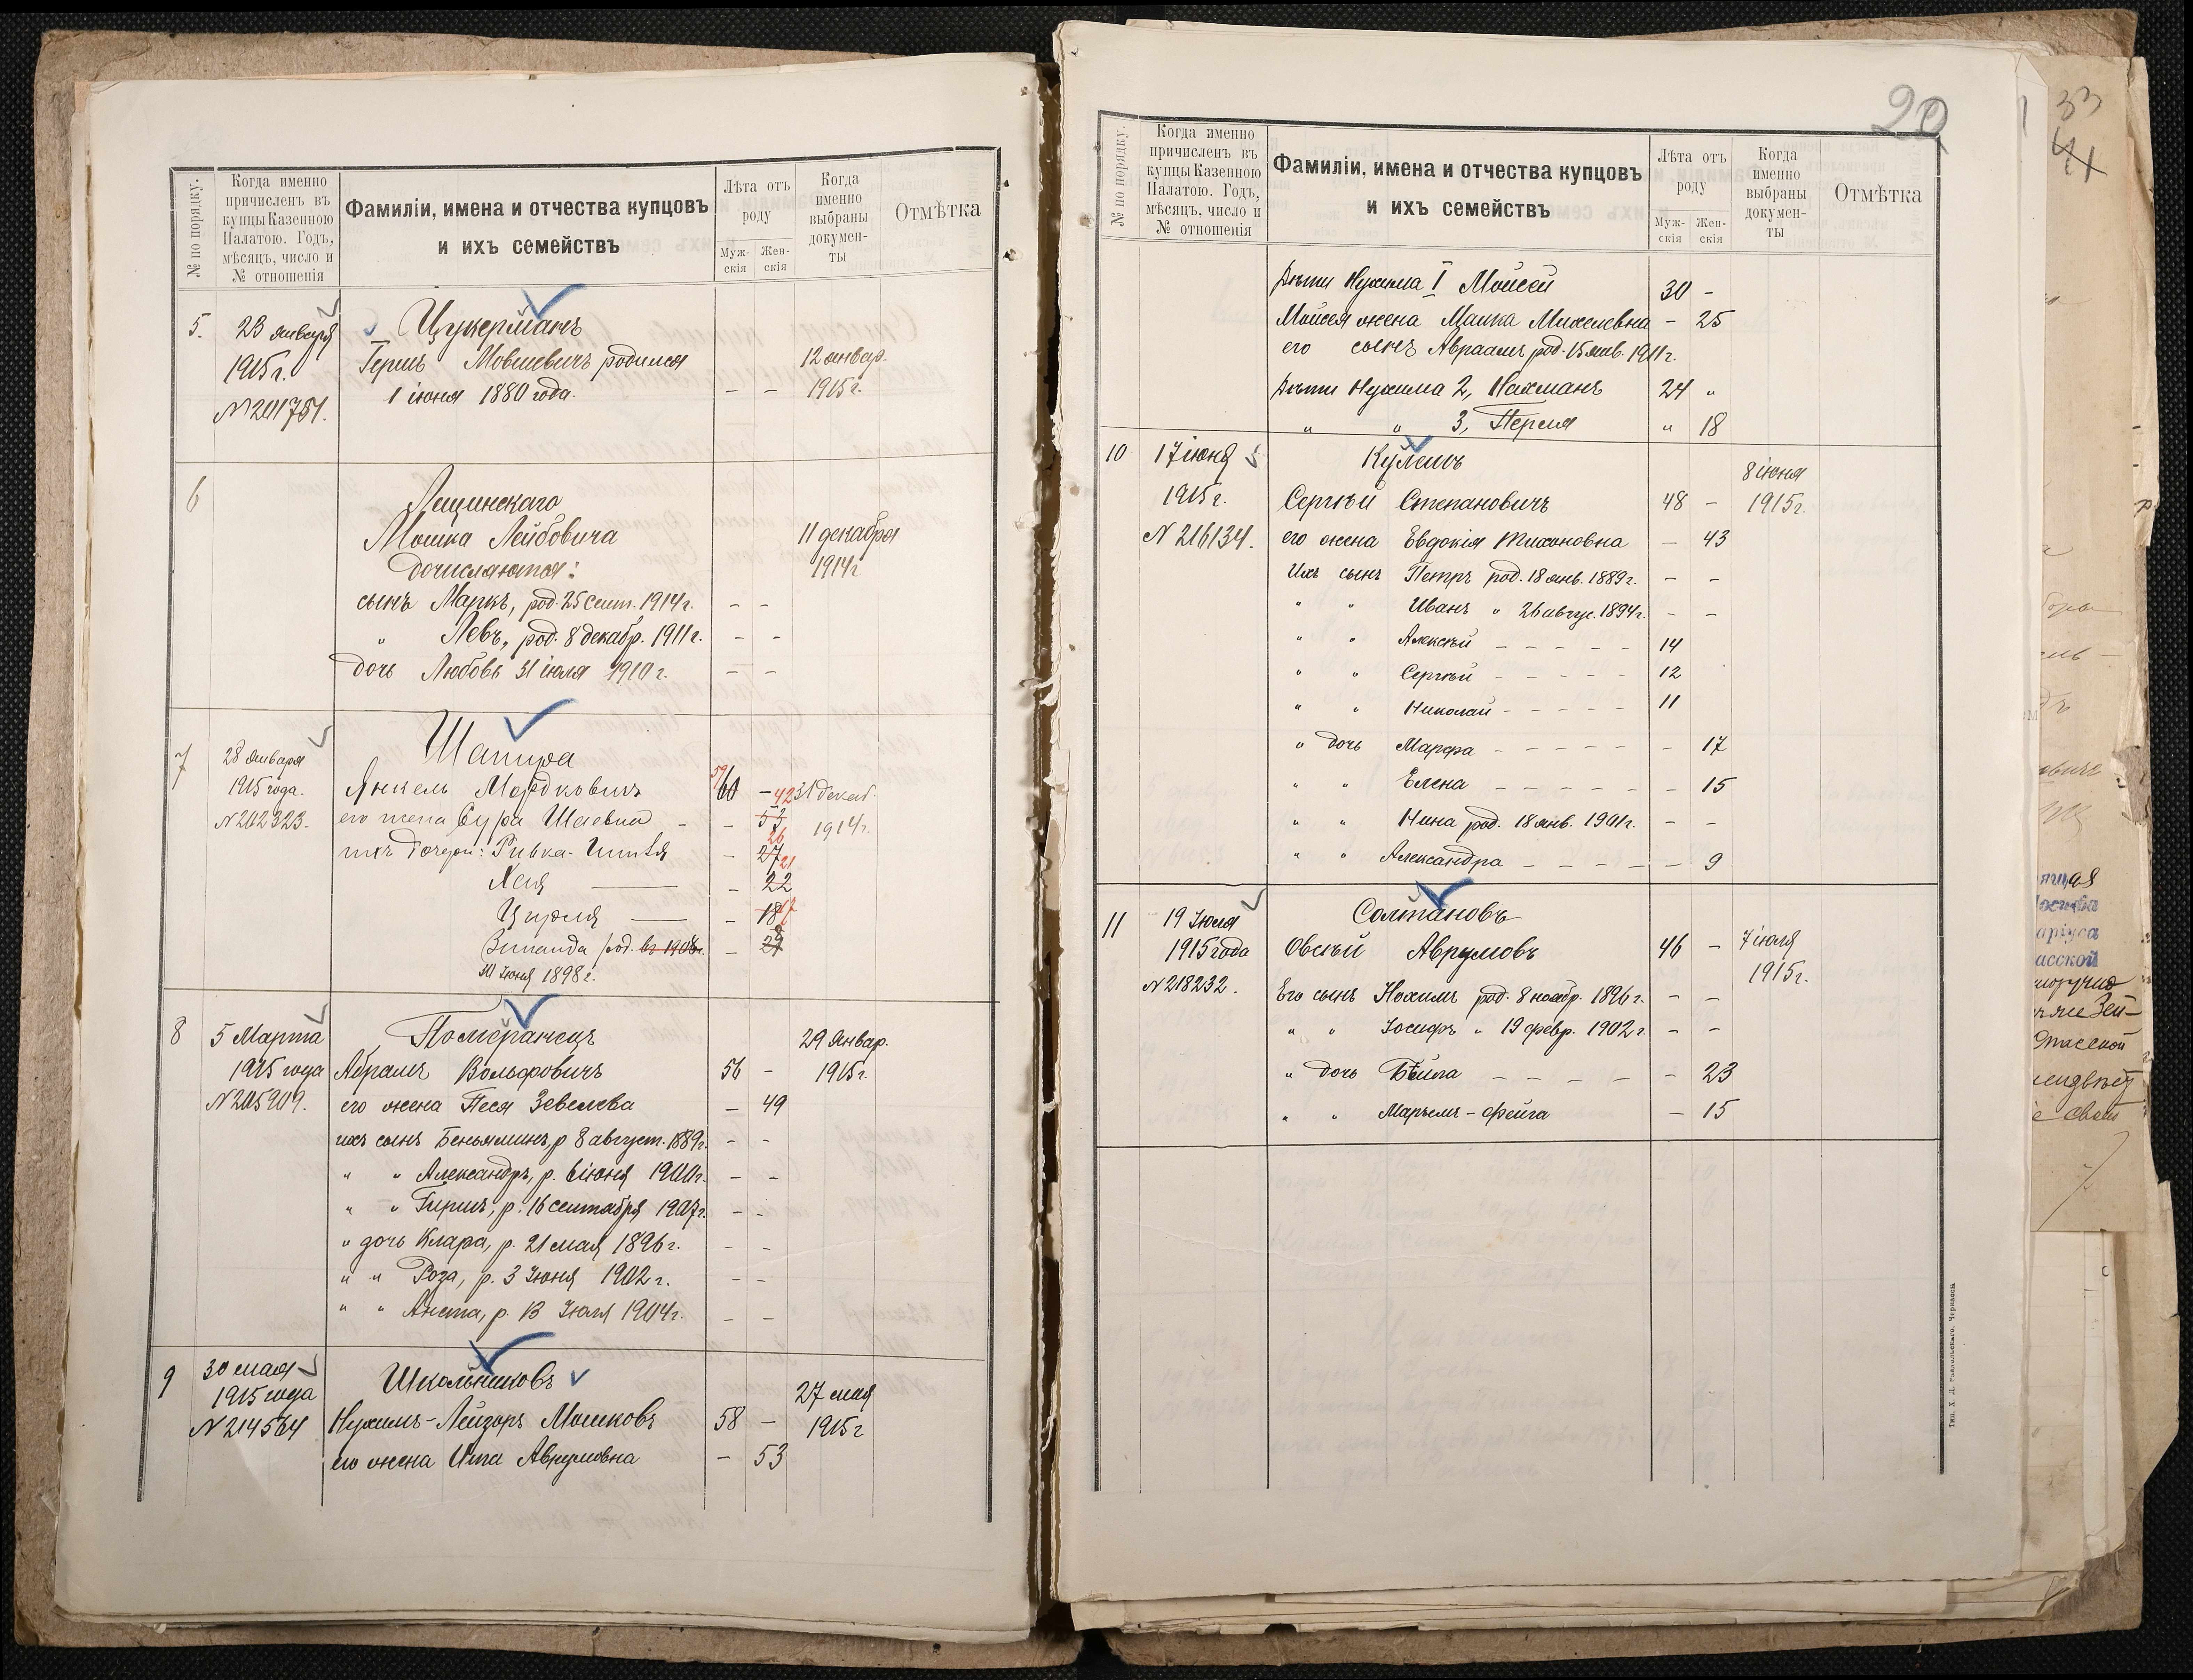 № по порядку.
Когда именно
причисленъ въ
купцы Казенною
Палатою. Годъ,
мѣсяцъ, число и
№ отношенія
Фамиліи, имена и отчества купцовъ
и ихъ семействъ
Лѣта отъ
роду
Муж-
скія
Жен-
скія
Когда
именно
выбраны
докумен-
ты
Отмѣтка
5. 23 января Цукерманъ
1915 г. Гершъ Мовшевичъ родился 12 январ.
1 іюня 1880 года. – – 1915 г.
№ 201751.
6
Лещинскаго
Мошка Лейбовича 11 декабря
дочисляются: 1914 г.
сынъ Маркъ, род. 25 сент. 1914 г. – –
" Левъ, род. 8 декабр. 1911 г. – –
дочь Любовь 31 іюля 1910 г. – –
7 28 января Шапира
1915 года. Янкель Мордковичъ 59 60 – 31 декаб.
№ 202323. его жена Сура Шаевна – – 42 53 1914 г.
ихъ дочери: Ривка- – 26 27
Хая – 21 22
Цирля – 18 17
Зинаида род. въ 1908 г. –
30 Іюня 1898 г.
8 5 Марта Померанецъ 29 Январ.
1915 года Абрамъ Вольфовичъ 56 – 1915 г.
№ 205909. его жена Песя Зевелева – 49
ихъ сынъ Беньяминъ, р 8 август. 1889 г. – –
" " Александръ, р. 6 іюня 1900 г. – –
" " Гиршъ, р. 16 сентября 1907 г. – –
" дочь Клара, р. 21 мая 1896 г. – –
" " Роза, р. 3 Іюня 1902 г. – –
" " Анета, р. 13 Іюля 1904 г. – –
9 30 мая Школьниковъ 27 мая
1915 года
№ 214564 Нухимъ-Лейзоръ Мошковъ 58 – 1915 г
его жена Ита Аврумовна – 53
20
№ по порядку.
Когда именно
причисленъ въ
купцы Казенною
Палатою. Годъ,
мѣсяцъ, число и
№ отношенія
Фамиліи, имена и отчества купцовъ
и ихъ семействъ
Лѣта отъ
роду
Муж-
скія
Жен-
скія
Когда
именно
выбраны
докумен-
ты
Отмѣтка
Дѣти Нухима I Мойсей 30 –
Мойсея жена Манка Михелевна – 25
его сынъ Авраамъ род. 15 янв. 1911 г.
Дѣти Нухима 2, Нахманъ 24 "
" " 3, Перля " 18
10 17 іюня Кулемъ 8 іюня
1915 г. Сергѣй Степановичъ 48 – 1915 г.
№ 216134. его жена Евдокія Тихоновна – 43
Ихъ сынъ Петръ род. 18 янв. 1889 г. – –
" " Иванъ " 26 авгус. 1894 г. – –
" " Алексѣй – – – – – 14
" " Сергѣй – – – – – 12
" " Николай – – – – – 11
" дочь Марфа – – – – – – 17
" " Елена – – – – – – 15
" " Нина род. 18 янв. 1901 г. – –
" " Александра – – – – – 9
11 19 Іюля Солтановъ
1915 года Овсѣй Аврумовъ 46 – 7 іюля
№ 218232. 1915 г.
Его сынъ Нохимъ род. 8 ноябр. 1896 г. – –
" " Іосифъ " 19 февр. 1902 г. – –
" дочь Бейла – – – – – – 23
" " Марьемъ-Фейга – 15
33
41